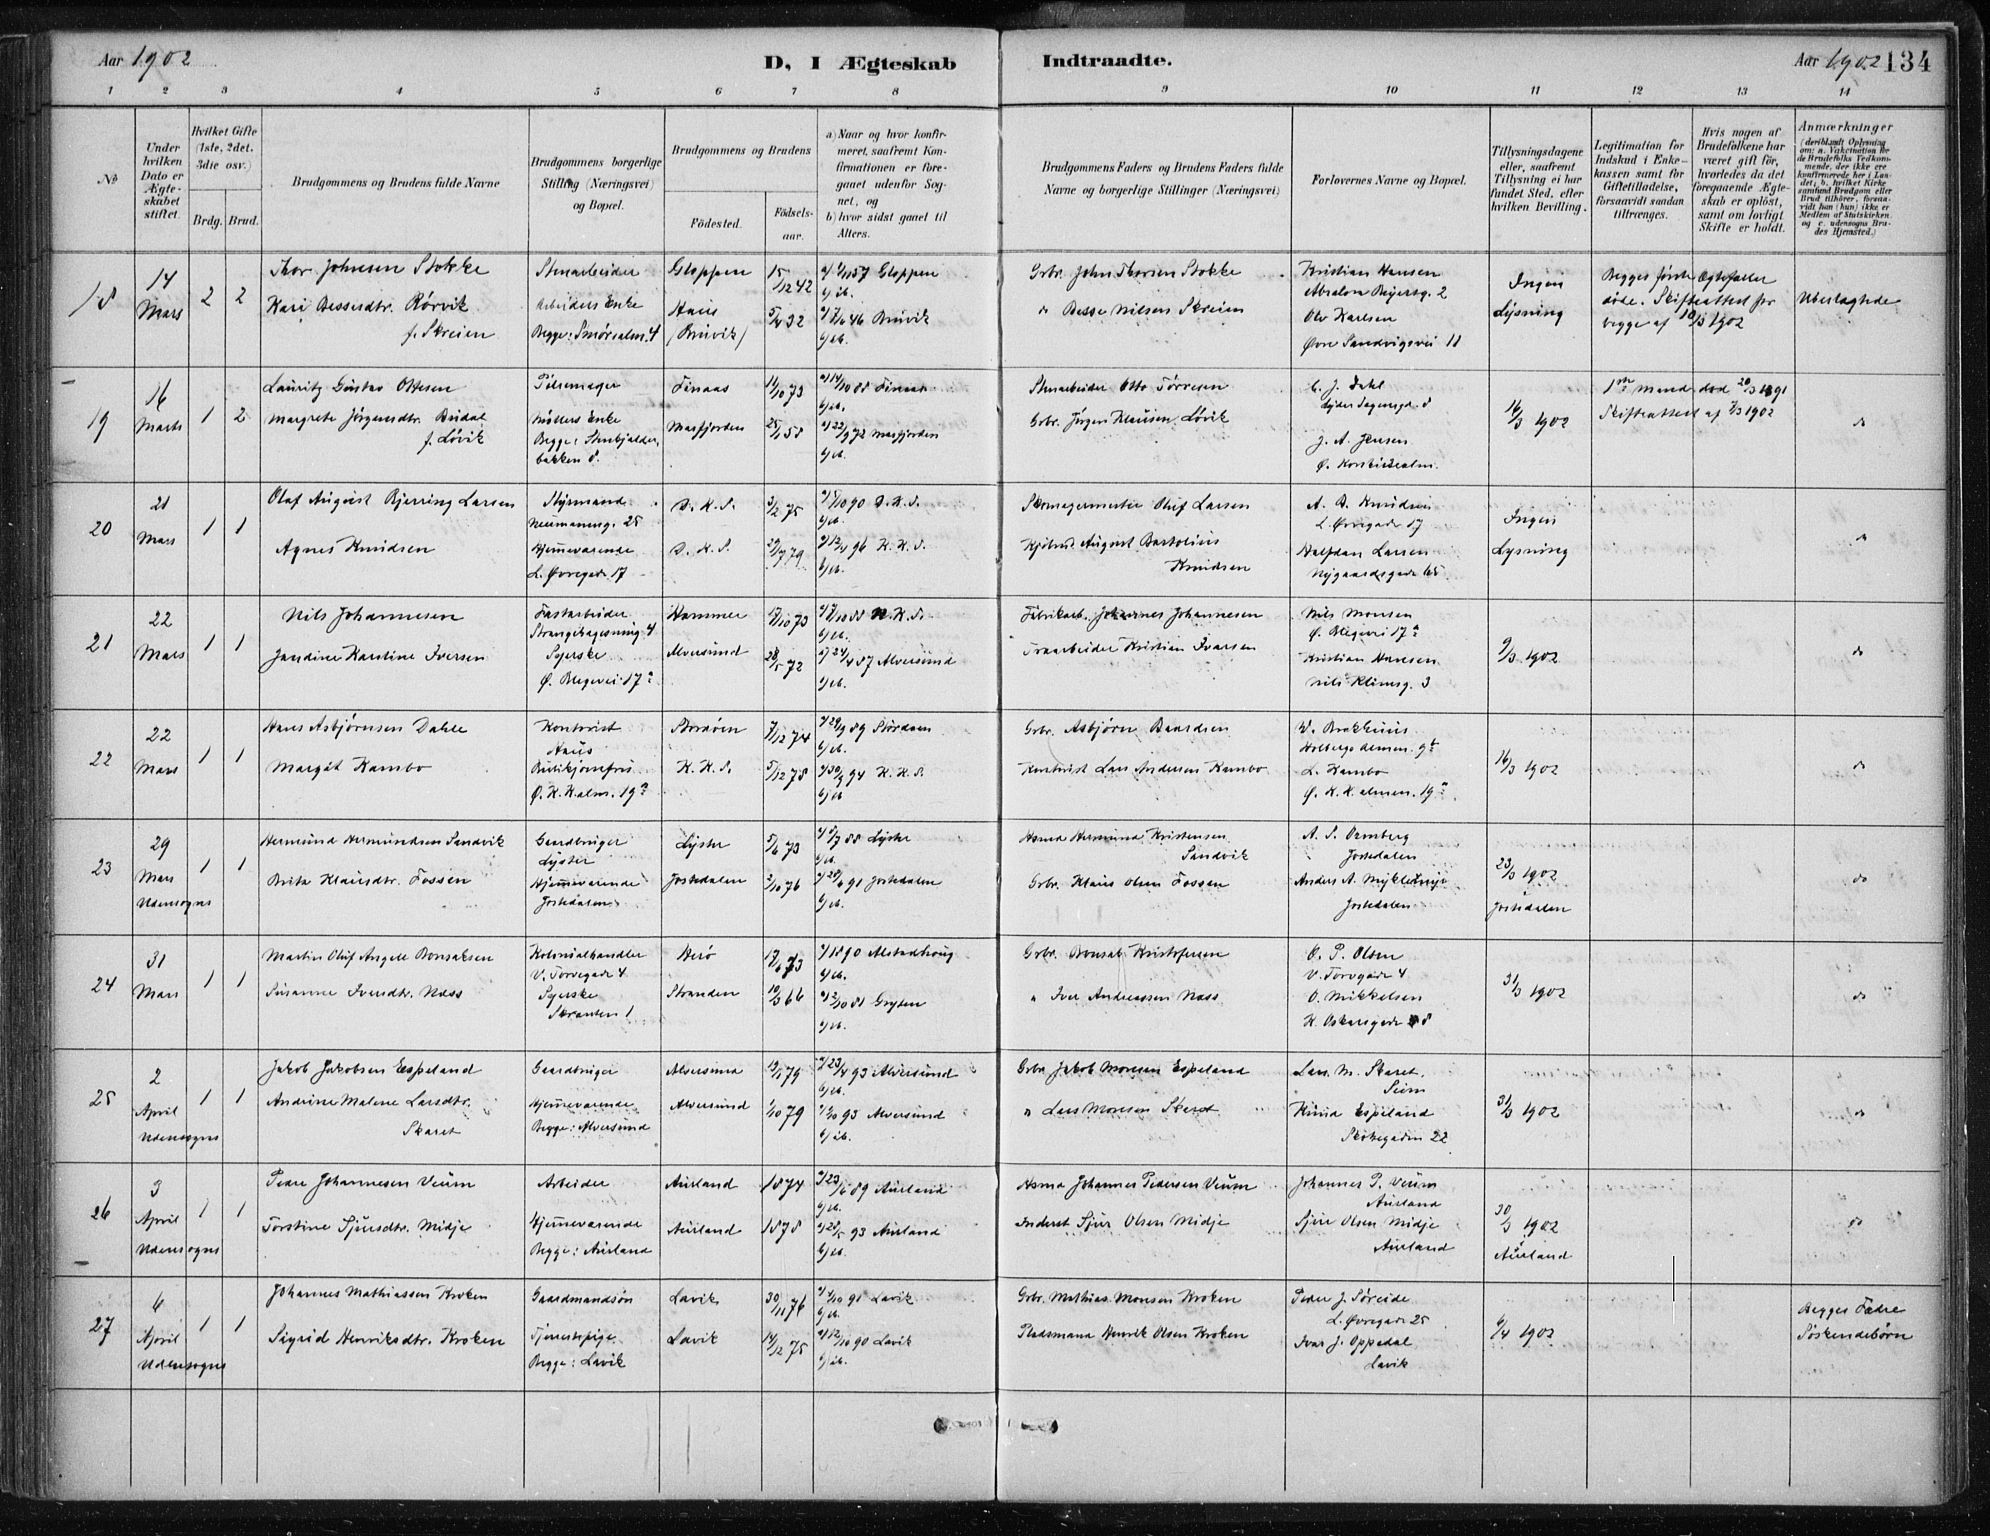 Aar 1902
D, I Ægteskab Indtraadte.
Aar 1902 134
1 2 3 4 5 6 7 8 9 10 11 12 13 14
No
Under hvilken Dato er Ægteskabet stiftet.
Hvilket Gifte (1ste, 2det, 3die osv.)
Brdg. Brud.
Brudgommens og Brudens fulde Navne
Brudgommens borgerlige Stilling (Næringsvei) og Bopæl.
Brudgommens og Brudens
Födested.
Födselsaar.
a) Naar og hvor konfirmeret, saafremt Konfirmationen er foregaaet udenför Sognet, og
b) hvor sidst gaaet til Alters.
Brudgommens Faders og Brudens Faders fulde Navne og borgerlige Stillinger (Næringsvei)
Forlovernes Navne og Bopæl.
Tillysningsdagene eller, saafremt Tillysning ei har fundet Sted, efter hvilken Bevilling.
Legitimation for Indskud i Enkekassen samt for Giftetilladelse, forsaavidt saadan tiltrænges.
Hvis nogen af Brudefolkene har været gift för, hvorledes da det foregaaende Ægteskab er oplöst, samt om lovligt Skifte er holdt.
Anmærkninger
(deriblandt Oplysning om: a. Vakcination for de Brudefolks Vedkommende, der ikke ere konfirmerede her i Landet; b. hvilket Kirkesamfund Brudgom eller Brud tilhörer, forsaavidt han (hun) ikke er Medlem af Statskirken, og c. udensogns Brudes Hjemsted.)
18 14 Mars 2 2
Thor Johnsen Stokke
Kari Bessesdtr. Rörvik
f. Skreien
Stenarbeider
Arbeiders Enke
Begge: Smörsalm. 4
Gloppen 15/12 42
Haus (Bruvik) 5/4 32
57 Gloppen
b) ib.
46 Bruvik
b) ib.
Grbr. John Thorsen Stokke
" Besse Nilsen Skreien
Kristian Hansen
Absalon Beyersg. 2
Olv Karlsen
Övre Sandvigsvei 11
Ingen Lysning
Begges förste Ægtefæller
döde. Skifteattest for
begge af 10/3 1902
Ubeslægtede
19 16 Marts 1 2
Lauritz Gustav Ottesen
Margrete Jörgensdtr. Budal
f. Lövik
Pölsemager
Möllers Enke
Begge: Stenkjælderbakken 8.
Finaas 14/10 73
Masfjorden 25/1 58
a) 14/10 88 Finaas
b) ib.
a) 22/9 72 Masfjorden
b) ib.
Stenarbeider Otto Törresen
Grbr. Jörgen Klausen Lövik
C. J. Dahl
J. A. Jensen
16/3 1902
1ste mand död 20/3 1891
Skifteattest af 7/3 1902
do
20 21 Mars 1 1
Olaf August Bjerring Larsen
Agnes Knudsen
Styrmand
Neumannsg. 25
Hjemmeværende
L. Övregade 17
D. K. S. 3/2 75
D. K. S. 29/7 79
90 D. K. S.
b) ib.
96 K. K. S.
b) ib.
Skomagermester Oluf Larsen
August Bartolius
Knudsen
A. B. Knudsen
L. Övregade 17
Halfdan Larsen
Nygaardsgade 65
Ingen Lysning
"
21 22 Mars 1 1
Nils Johannesen
Jandine Karstine Iversen
Fastarbeider
Strangehagesning 4
Syerske
Ö. Blegevei 17a
Hammer 17/10 73
Alversund 28/5 72
88 K. K. S.
b) ib.
a) 24/4 87 Alversund
b) ib.
Fabrikarb. Johannes Johannesen
Traarbeider Kristian Ivarsen
Nils Monsen
Ö. Blegevei 17a
Kristian Hansen
Nils Klimsg. 3
9/3 1902
do
22 22 Mars 1 1
Hans Asbjörnsen Dahle
Margit Kambo
Kontorist
Haus
Butikjomfru
Ö. K. K. alm. 19a
Stordöen 7/12 74
K. K. S. 5/12 78
89 Stordöen
b) ib.
94 K. K. S.
b) ib.
Grbr. Asbjörn Baardsen
Kontorist Lars Andersen Kambo
W. Brekhuus
L. Kambo
Ö. K. K. almen. 19a
16/3 1902
do
23 29 Mars Udensogns 1 1
Hermund Hermundsen Sandvik
Brita Klausdtr. Fossen
Gaardbruger
Lyster
Hjemmeværende
Jostedalen
Lyster 5/6 73
Jostedalen 2/10 76
88 Lyster
b) ib.
91 Jostedalen
b) ib.
Hsmd Hermund Kristensen
Sandvik
Grbr. Klaus Olsen Fossen
A. S. Ormberg
Jostedalen
Anders A. Myklemyr
Jostedalen
23/3 1902
Jostedalen
do
24 31 Mars 1 1
Martin Oluf Angell Bonsaksen
Susanne Iversdtr. Næss
Kolonialhandler
V. Torvegade 4
Syerske
Skranten 1
Herö 17/6 73
Stranden 10/3 66
a) 1890 Alstadhoug
b) ib.
a) 2/10 81 Gryten
b) ib.
Grbr. Bonsak Kristofersen
" Iver Andreassen Næss
O. P. Olsen
V. Torvgade 4
O. Mikkelsen
K. Oskarsgade 8
31/3 1902
do
25 2 April Udensogns 1 1
Jakob Jakobsen Espeland
Andrine Malene Larsdtr.
Skaret
Gaardbruger
Hjemmeværende
Begge: Alversund
Alversund 12/1 79
Alversund 1/10 79
a) 23/4 93 Alversund
b) ib.
93 Alversund
b) ib.
Grbr Jakob Monsen Espeland
" Lars Monsen Skaret
Lars M. Skaret,
Seim
Knud Espeland
22
31/3 1902
do
26 3 April Udensogns 1 1
Peder Johannesen Veum
Torstine Sjursdtr. Midje
Arbeider
Hjemmeværende
Begge: Aurland
Aurland 1874
Aurland 1878
89 Aurland
b) ib.
93 Aurland
b) ib.
Hsmd Johannes Pedersen Veum
Inderst Sjur Olsen Midje
Johannes P. Veum
Aurland
Sjur Olsen Midje
Aurland
30/3 1902
Aurland
do
27 6 April Udensogns 1 1
Johannes Mathiassen Kroken
Sigrid Henriksdtr. Kroken
Gaardmandsön
Tjenestepige
Begge: Lavik
Lavik 30/11 76
Lavik 14/12 75
91 Lavik
b) ib.
a) 12/10 90 Lavik
b) ib.
Grbr. Mathias Monsen Kroken
Pladsmand Henrik Olsen Kroken
Peder J. Söreide
L. Övregade 25
Ivar J. Oppedal
Lavik
6/4 1902
Begges Fædre
Söskendebörn